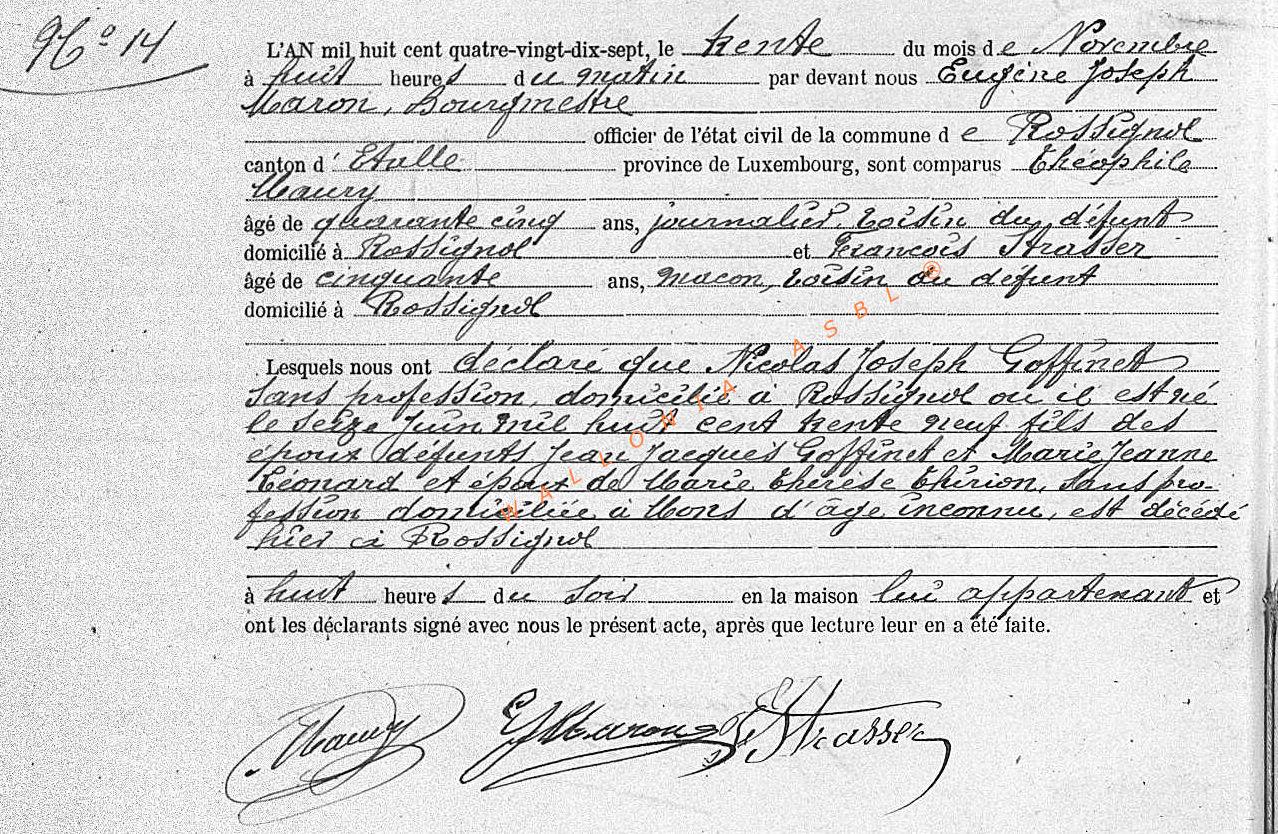 N° 14
L'AN mil huit cent quatre-vingt-dix-sept, le trente du mois de Novembre
à huit heures du matin par devant nous Eugène Joseph
Maron, Bourgmestre
officier de l'état civil de la commune de Rossignol
canton d'Etalle province de Luxembourg, sont comparus Théophile
Maury
âgé de quarante cinq ans, journalier, voisin du défunt
domicilié à Rossignol et François Strasser
âgé de cinquante ans, macon, voisin du défunt
domicilié à Rossignol
Lesquels nous ont déclaré que Nicolas Joseph Goffinet
sans profession, domicilié à Rossignol où il est né
le seize Juin mil huit cent trente neuf fils des
époux défunts Jean Jacques Goffinet et Marie Jeanne
Léonard et époux de Marie Thérèse Thirion, sans pro-
fession domiciliée à Mons d'âge inconnu, est décédé
hier à Rossignol
à huit heures du soir en la maison lui appartenant et
ont les déclarants signé avec nous le présent acte, après que lecture leur en a été faite.
Maury EJMaron Strasser
WALLONIA ASBL ®